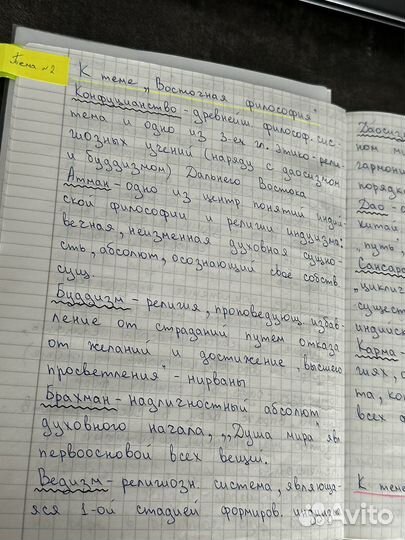 Тема №2
К теме „Восточная философия"
Конфуцианство - древнейш. философ. сис-
тема и одно из 3-ех гл. этико-рели-
гиозных учений (наряду с даосизмом
и буддизмом) Дальнего Востока
Атман - одно из центр. понятий индий-
ской философии и религии индуизма:
вечная, неизменная духовная сущно-
сть, абсолют, осознающий свое собств.
сущ.
Буддизм - религия, проповедующ. избав-
ление от страданий путем отказа
от желаний и достижение „высшего
просветления" - нирваны
Брахман - надличностный абсолют
духовного начала, „Душа мира" явл
первоосновой всех вещей.
Ведизм - религиозн. система, являюща-
яся 1-ой стадией формиров. индуизма
Даосизм
ном м
гармони
порядк
Дао - о
китай
„путь",
Сансара
„циклич
существ
индийск
Карма -
гиях, с
та, ко
всех
К теме
Avito